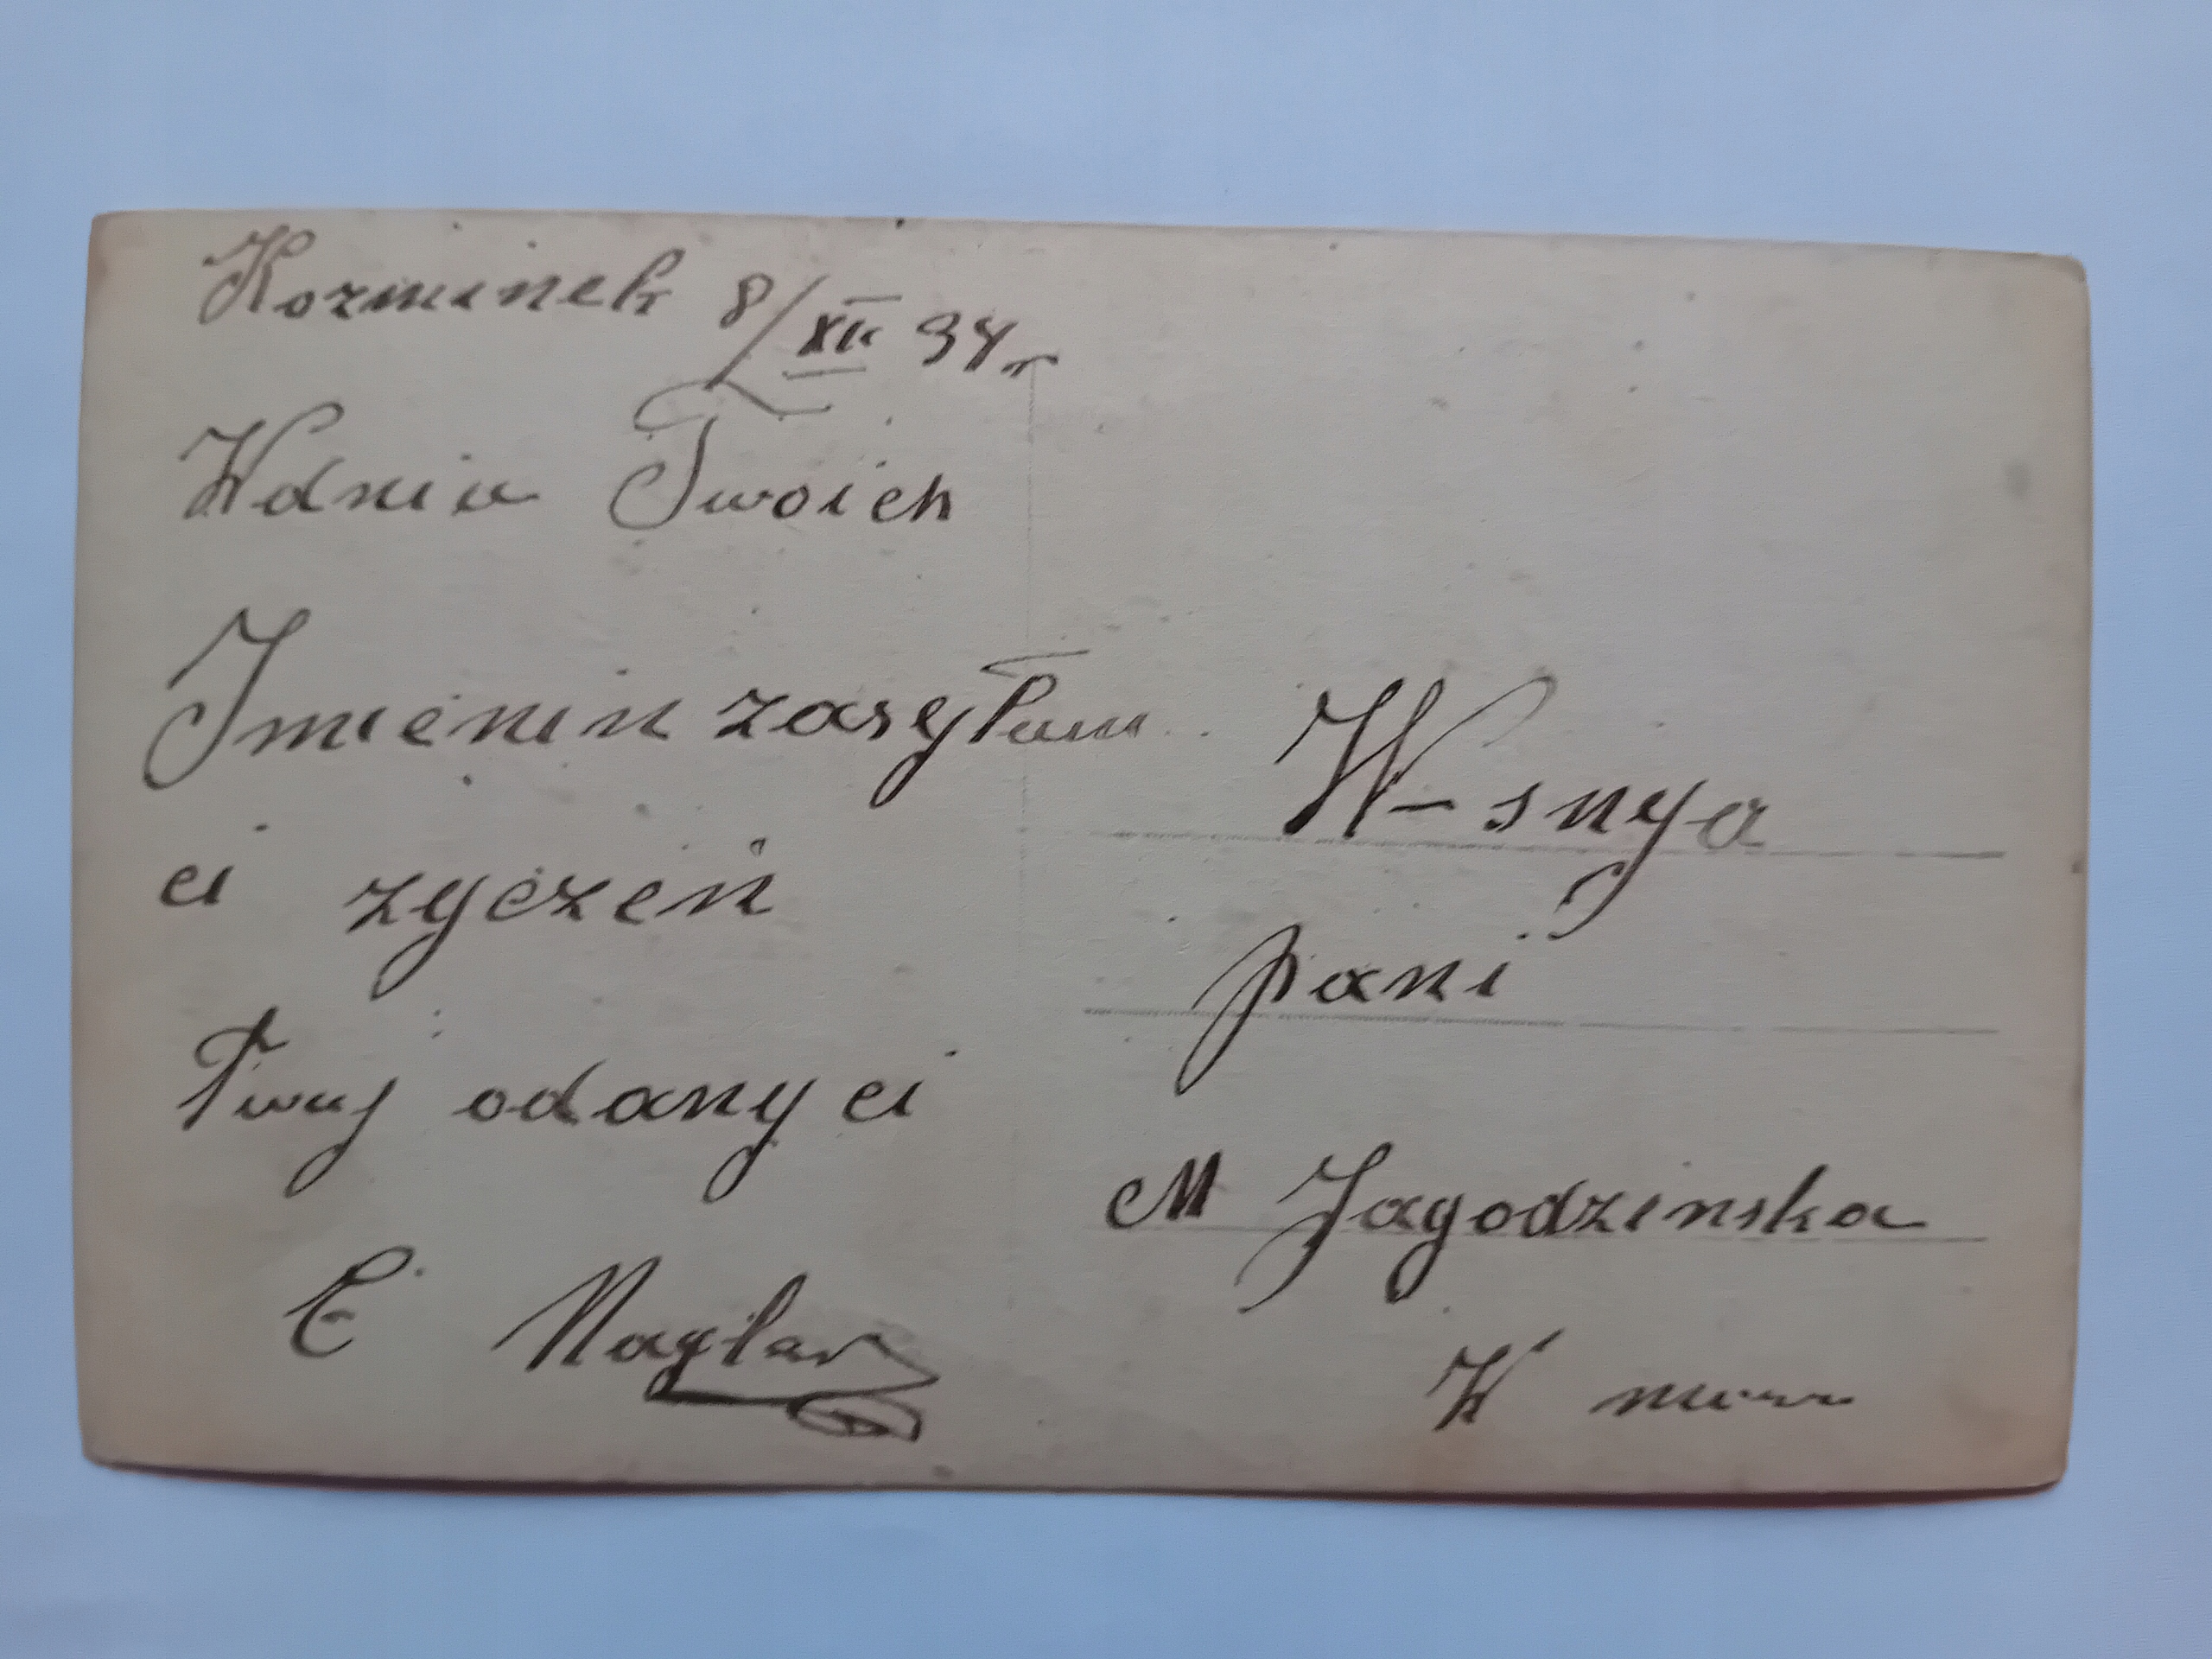 Kozminek 8/XII 34r
Wdniu Twoich
Imienin zasyłam
ci zyczeń
Twuj odany ci
E Naglar
W-snya
pani
M Jagodzinska
W